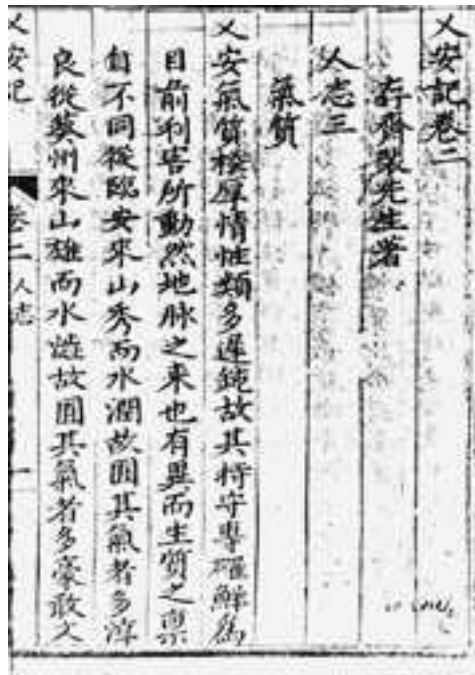 乂安記卷二
存齋裴先生著
人志三
氣質
乂安氣質樸厚情性類多遲鈍故其持守專確鮮為
目前利害所動然地脉之来也有異而生質之稟
自不同從臨安来山秀而水潤故囿其氣者多淳
良從葵州来山雄而水澁故囿其氣者多豪敢人
乂安記 卷二 人志 一